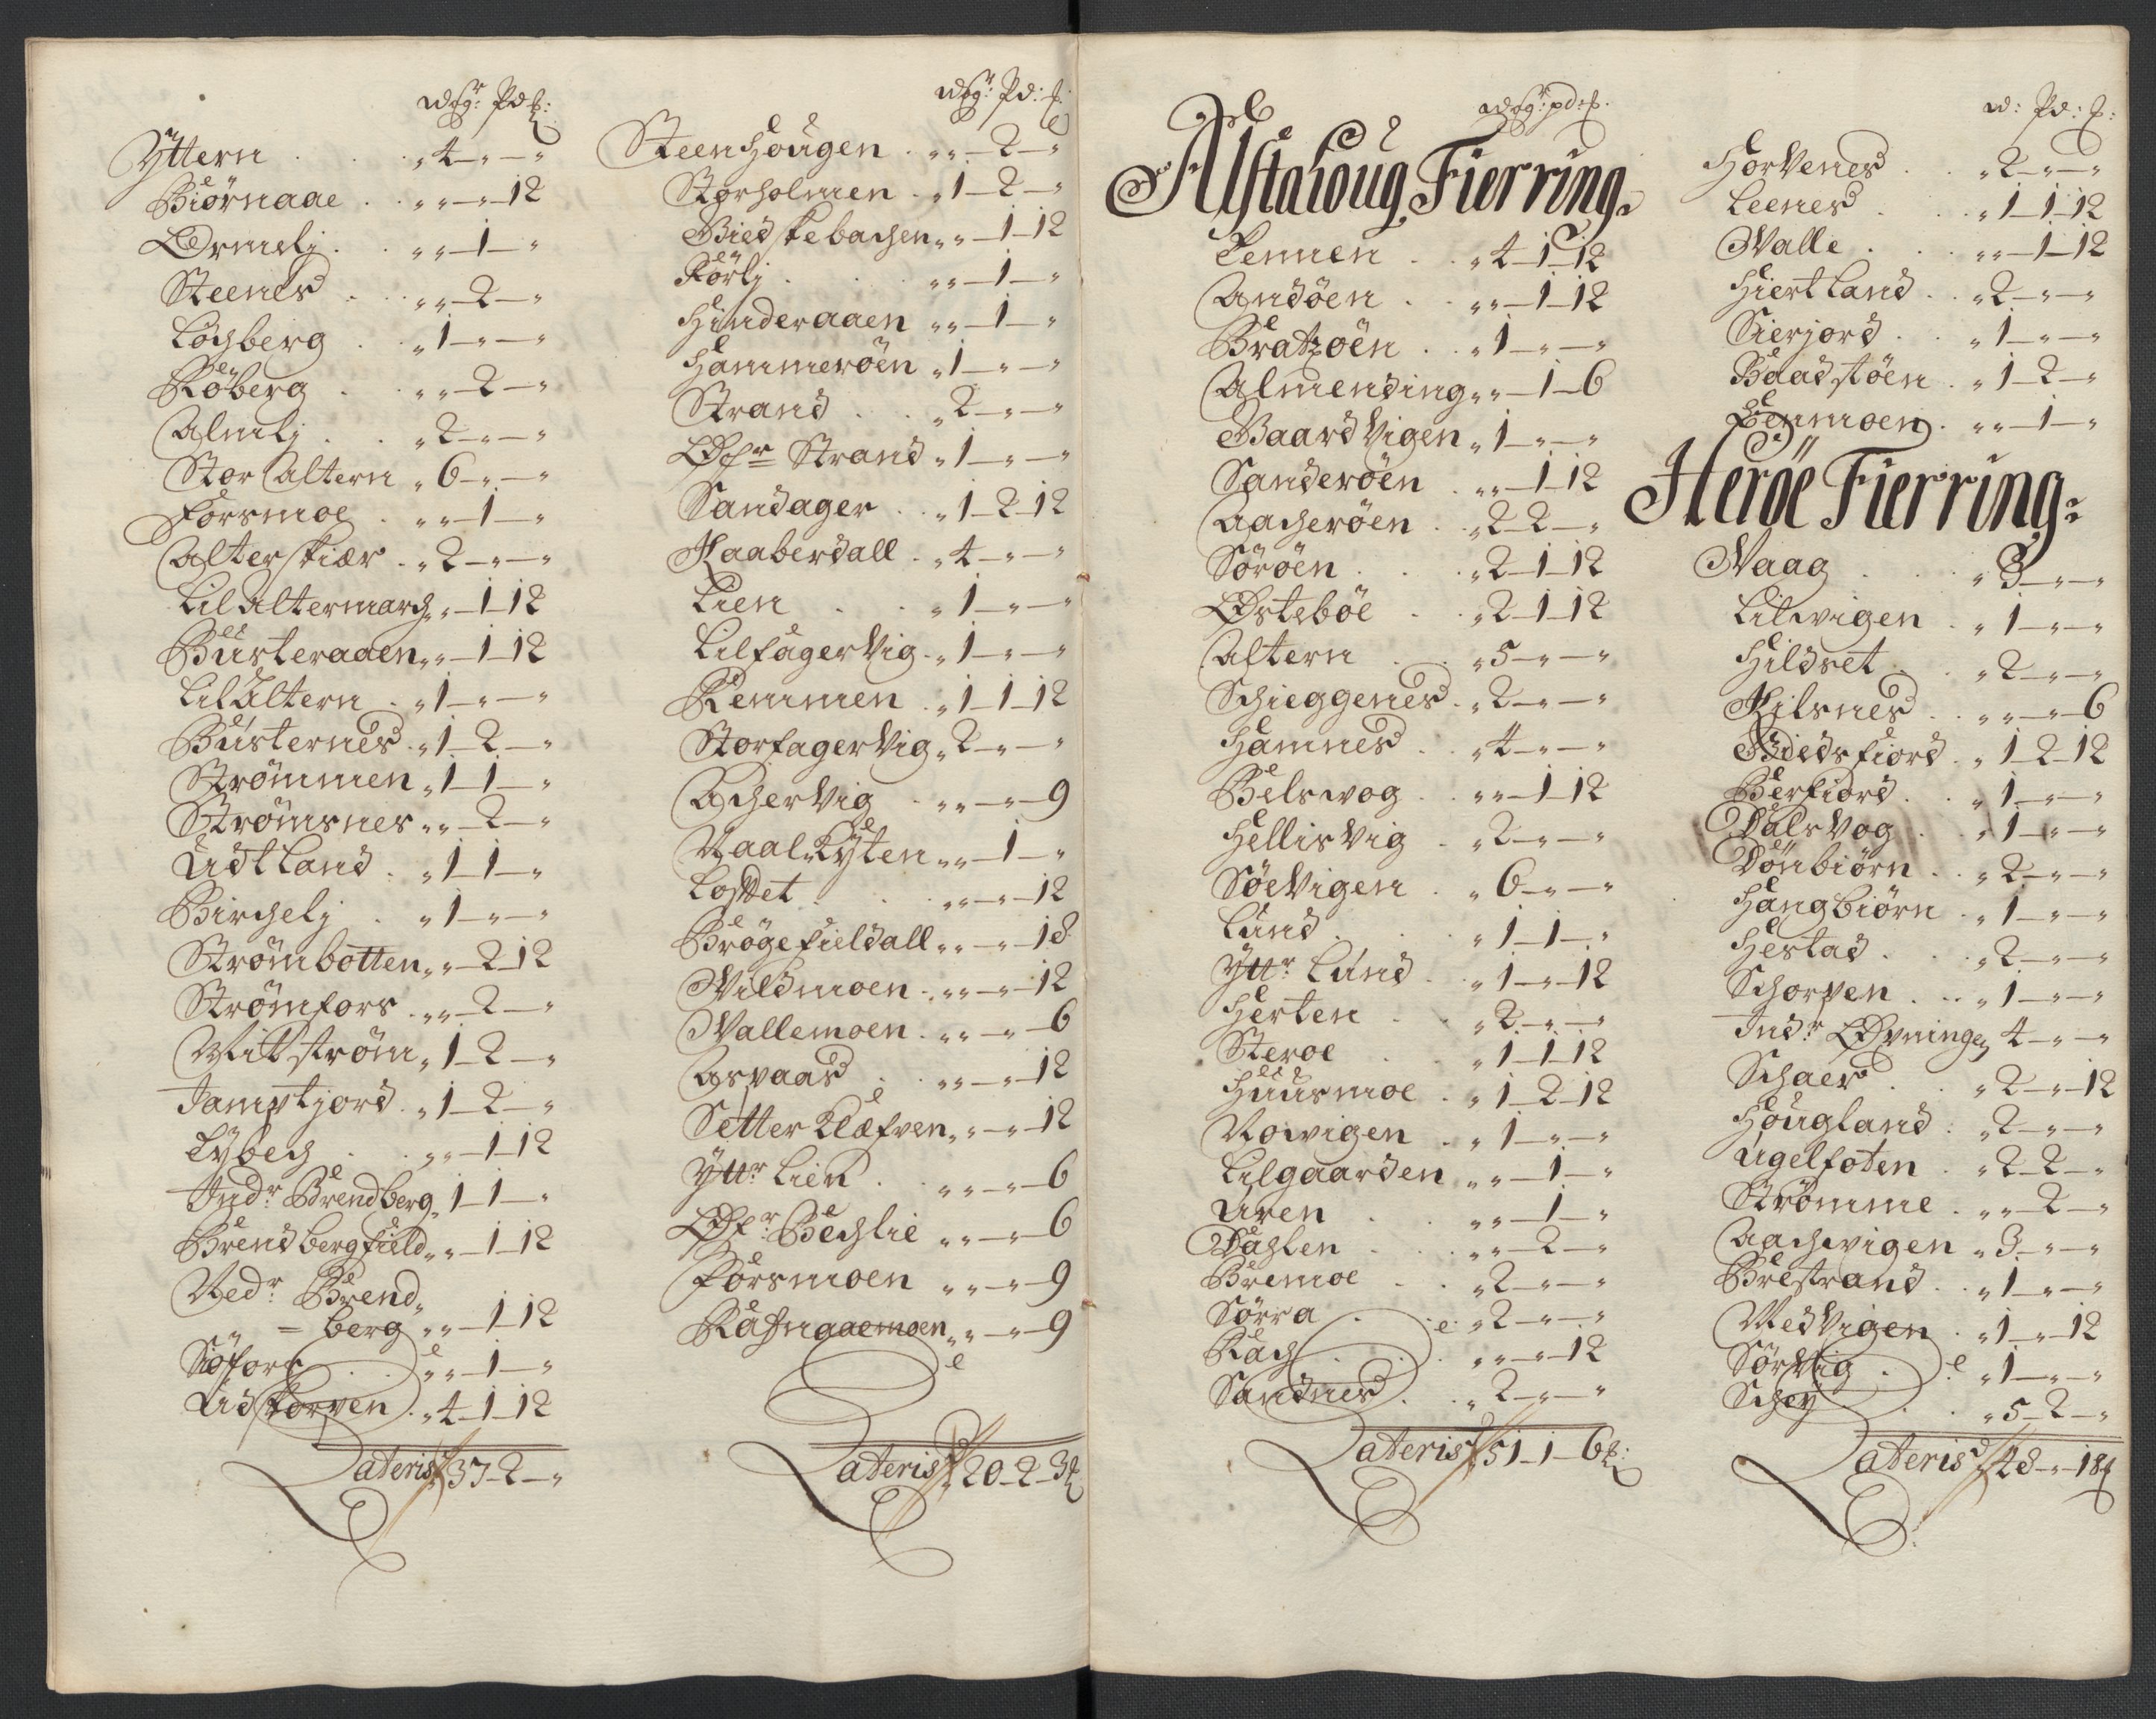 wogr: Pd ℔:
Yttern . . „ 4 – „ – „
Biörnaae . „ „ – „ – 12
Ormelj . . „ „ – 1 – „
Steenes . . „ „ – 2 – „
Lochberg . „ 1 – „ – „
Röberg . . „ „ – 2 – „
Almlj . . „ 2 – „ – „
Stor Altern „ 6 – „ – „
Forsmoe . „ „ – 1 – „
Alterskiær . „ 2 – „ – „
Lilaltermarch „ „ – 1 – 12
Busteraaen „ „ – 1 – 12
Lilaltern . „ 1 – „ – „
Busternes . „ 1 – 2 – „
Strömmen „ 1 – 1 – „
Strömsnes „ „ – 2 – „
Udtland . „ 1 – 1 – „
Birchelj . „ 1 – „ – „
Strömbotten „ „ – 2 – 12
Strömfors . „ „ – 2 – „
Mitström „ 1 – 2 – „
Jamptjord . „ 1 – 2 – „
Lybech . . „ „ – 1 – 12
Indr Brendberg „ 1 – 1 – „
Brendbergfield „ „ – 1 – 12
Nedr Brend„
„ = berg „ „ – 1 – 12
Söfors . . „ „ – 1 – „
Udskorpen . „ 4 – 1 – 12
Lateris 37 – 2 – „
wogr: Pd: ℔.
Steenhougen . „ „ – 2 – „
Storholmen . „ 1 – 2 – „
Biedskebachen „ „ – 1 – 12
Förlj . . „ „ – 1 – „
Hinderaaen „ „ – 1 – „
Hammeröen „ 1 – „ – „
Strand . . „ 2 – „ – „
Øfr Strand „ 1 – „ – „
Sandager . . „ 1 – 2 – 12
Kaaberdall . „ 4 – „ – „
Lien . . „ 1 – „ – „
LilfagerVig . „ 1 – „ – „
Remmen . „ 1 – 1 – 12
StorfagerVig „ 2 – „ – „
AcherVig . „ „ – „ – 9
Naal Ryten „ „ – 1 – „
Losset . . „ „ – „ – 12
Brögefieldall „ „ – „ – 18
Mildmoen . „ „ – „ – 12
Vallemoen . „ „ – „ – 6
Aspaas . . „ „ – „ – 12
Setter Klæfven „ „ – „ – 12
Yttr Lien . „ „ – „ – 6
Øfr Bechlie „ „ – „ – 6
Forsmoen „ „ – „ – 9
Rafnaaemoen „ „ – „ – 9
Lateris 20 – 2 – 3 ℔
wogr: pd: ℔.
Alstahoug Fierring.
Tennen . . „ 4 – 1 – 12
Andöen . . „ „ – 1 – 12
Bratzöen . . „ 1 – „ – „
Almending „ „ – 1 – 6
BaardVigen „ 1 – „ – „
Sanderöen . „ „ – 1 – 12
Aacheröen . „ 2 – 2 – „
Söröen . . „ 2 – 1 – 12
Østeböe . . „ 2 – 1 – 12
Altern . . „ 5 – „ – „
Schieggenes . „ 2 – „ – „
Hamnes . . „ 4 – „ – „
Belswog . . „ „ – 1 – 12
HellisVig . „ 2 – „ – „
SöeVigen . „ 6 – „ – „
Lund . . . „ 1 – 1 – „
Yttr Lund . „ 1 – „ – 12
Herten . . „ 2 – „ – „
Steroe . . „ 1 – 1 – 12
Huusmoe . „ 1 – 2 – 12
Nowigen . „ 1 – „ – „
Lilgaarden „ „ – 1 – „
Uren . . „ „ – 1 – „
Dahlen . . „ „ – 2 – „
Bremoe . . „ 2 – „ – „
Sörra . . „ 2 – „ – „
Rach . . „ „ – „ – 12
Sandnes . . „ 2 – „ – „
Lateris 51 – 1 – 6 ℔:
w: Pd: ℔:
Horvenes . . „ 2 – „ – „
Leenes . . „ 1 – 1 – 12
Valle . . „ „ – 1 – 12
Hiertland . . „ 2 – „ – „
Sierjord . . „ 1 – „ – „
Baadstöen . „ 1 – 2 – „
Hemmoen . „ „ – 1 – „
Heröe Fierring:
Vaag . . „ 3 – „ – „
Lilwigen . „ 1 – „ – „
Hildset . . „ 2 – „ – „
Kilsnes . . „ „ – „ – 6
Giedsfiord . „ 1 – 2 – 12
Berfiord . . „ 1 – „ – „
DalsVog . . „ 1 – „ – „
Dönbiörn . . „ 2 – „ – „
Hangbiörn . „ 1 – „ – „
Hestad . . „ 2 – „ – „
Schorpen . . „ 1 – „ – „
Indr Øvningen 4 – „ – „
Schaer . . „ 2 – „ – 12
Hougland . „ 2 – „ – „
Ugelfoten . „ 2 – 2 – „
Strömme . „ „ – 2 – „
Aachwigen „ 3 – „ – „
Brestrand . „ 1 – „ – „
MedVigen . „ 1 – „ – 12
SörVig . . „ 1 – „ – „
Schey . . „ 5 – 2 – „
Lateris 48 – „ – 18 ℔